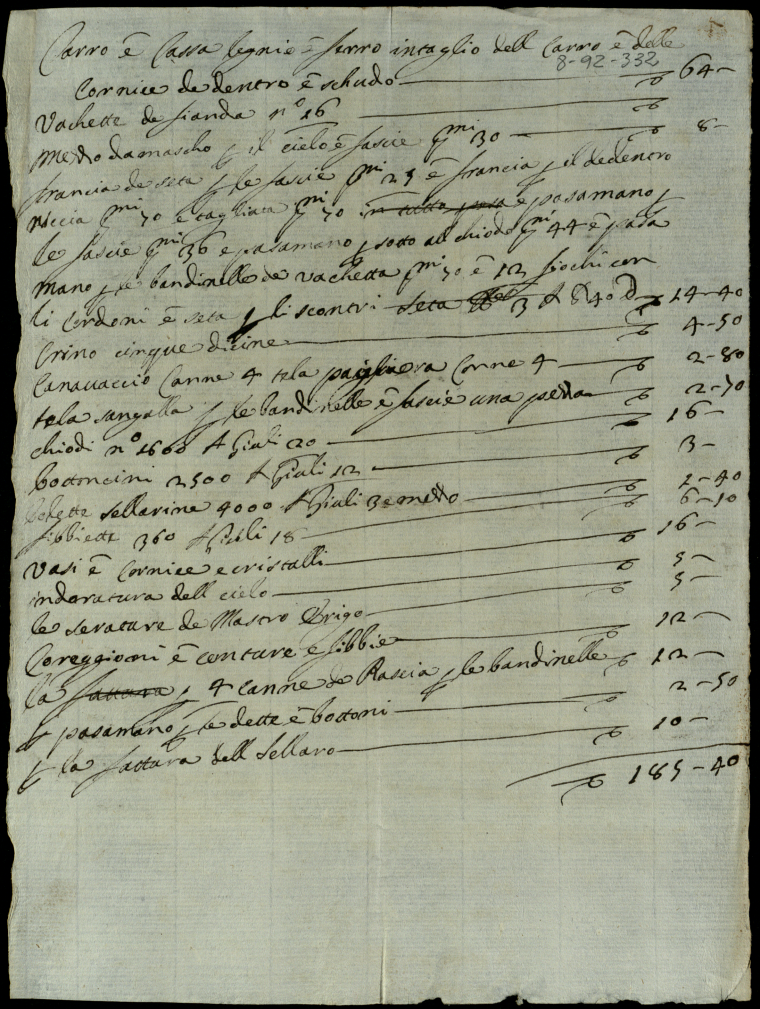 Carro ē Cassa legnie ē ferro intaglio dell Carro ē delle
8-92-332
Cornice de dentro ē schudo 64-
Vachette de fianda n° 16
Mezzo damascho p il cielo ē fascie pmi 30 8-
francia de seta p le fascie pmi 25 ē francia p il dedentro
riccia pmi 70 e tagliata pmi 70 in tutto e pasamano p
le fascie pmi 36 e pasamano p sotto al chiode pmi 44 ē pasa
mano p le bandinelle de vachetta pmi 50 ē 12 fiochi con
li cordoni ē seta p li scontri seta 3 A 40 14-40
Crino cinque dicine 4-50
Canavaccio Canne 4 tela pagliera Canne 4 2-80
tela sangalla p le bandinelle ē fascie una pezza 2-70
chiodi n° 1600 A Giuli 20 16-
bottoncini 2500 A Giuli 12 3-
bolette sellarine 4000 A Giuli 3 e mezzo 1-40
fibbiette 360 A Giuli 18 6-10
Vasi ē Cornice e cristalli 16-
indoratura dell cielo 5-
le serature de Mastro Brigo 5-
Coreggioni ē centure e fibbie 12-
la fattura p 4 canne de Rascia p le bandinelle 12-
p pasamano p le dette ē bottoni 2-50
p la fattura dell Sellaro 10-
185-40